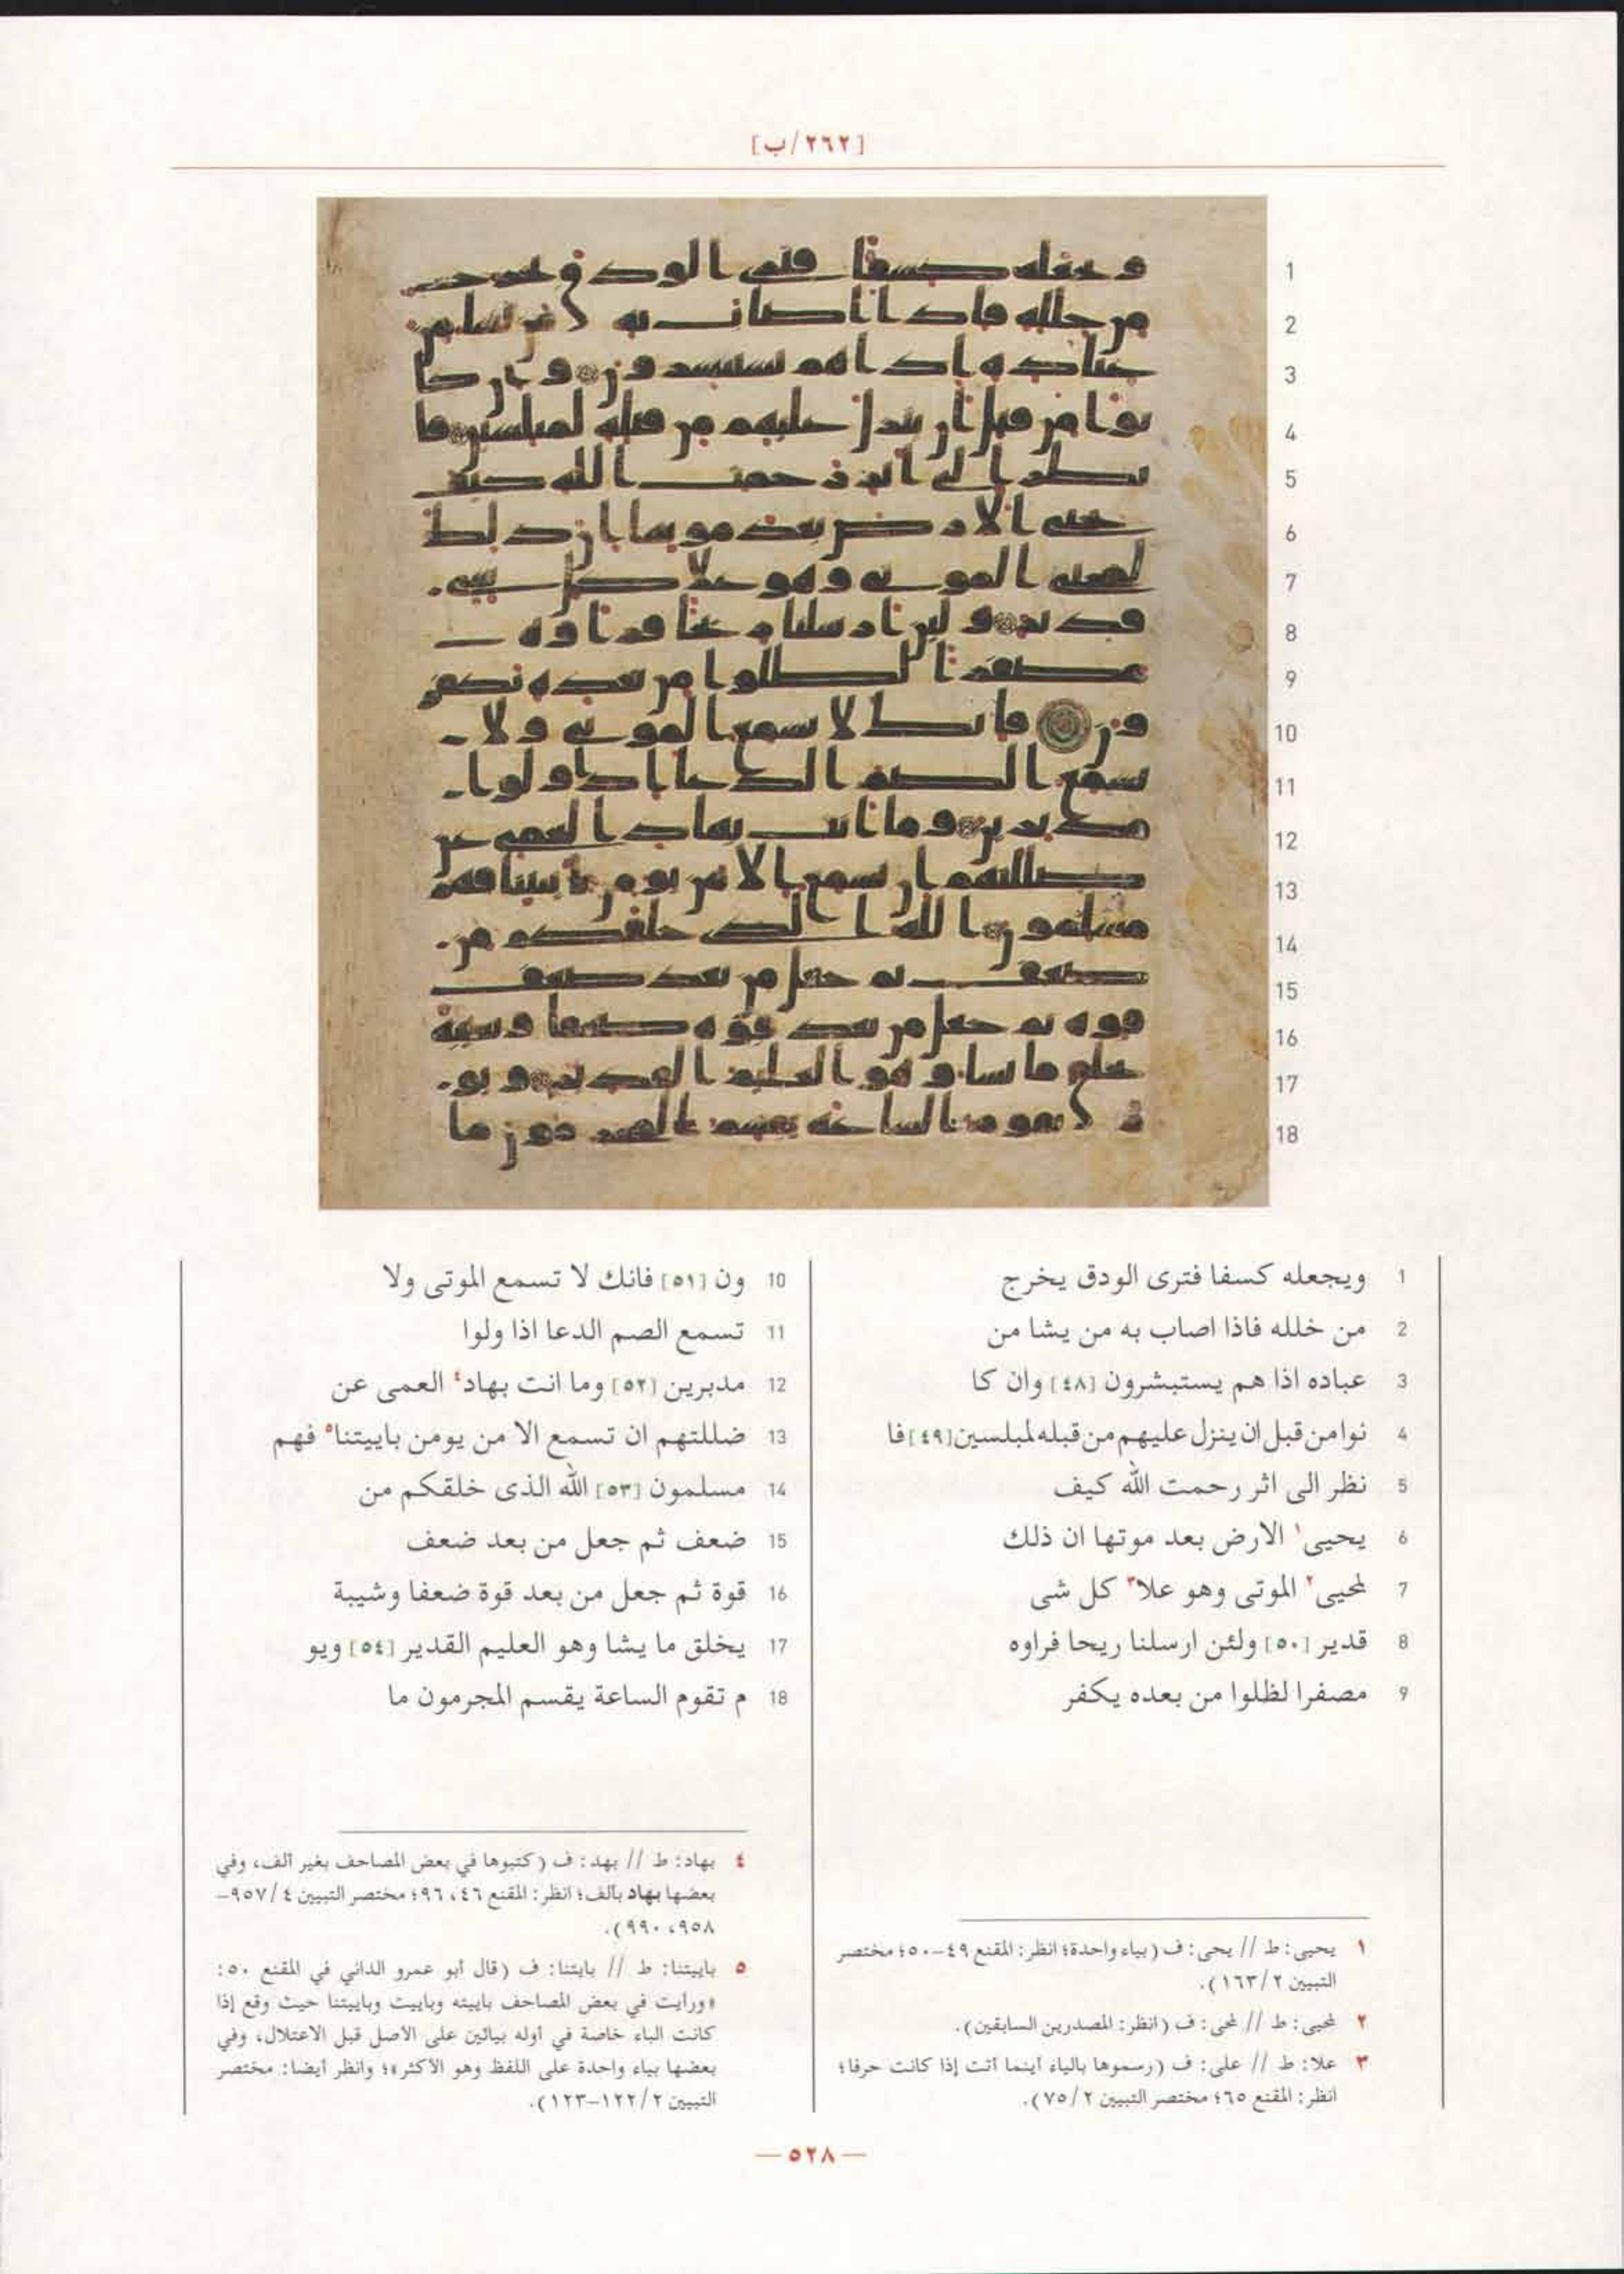 [٢٦٢/ب]
1 ويجعله كسفا فترى الودق يخرج
2 من خلله فاذا اصاب به من يشا من
3 عباده اذا هم يستبشرون [٤٨] وان كا
4 نوا من قبل ان ينزل عليهم من قبله لمبلسين [٤٩] فا
5 نظر الى اثر رحمت الله كيف
6 يحيى١ الارض بعد موتها ان ذلك
7 لمحيى٢ الموتى وهو علا٣ كل شى
8 قدير [٥٠] ولئن ارسلنا ريحا فراوه
9 مصفرا لظلوا من بعده يكفر
10 ون [٥١] فانك لا تسمع الموتى ولا
11 تسمع الصم الدعا اذا ولوا
12 مدبرين [٥٢] وما انت بهاد٤ العمى عن
13 ضللتهم ان تسمع الا من يومن باييتنا٥ فهم
14 مسلمون [٥٣] الله الذى خلقكم من
15 ضعف ثم جعل من بعد ضعف
16 قوة ثم جعل من بعد قوة ضعفا وشيبة
17 يخلق ما يشا وهو العليم القدير [٥٤] ويو
18 م تقوم الساعة يقسم المجرمون ما
١ يحيى: ط // يحى: ف (بياء واحدة؛ انظر: المقنع ٤٩-٥٠؛ مختصر
التبيين ١٦٣/٢).
٢ لمحيى: ط // لمحى: ف (انظر: المصدرين السابقين).
٣ علا: ط // على: ف (رسموها بالياء أينما أتت إذا كانت حرفا؛
انظر: المقنع ٦٥؛ مختصر التبيين ٧٥/٢).
٤ بهاد: ط // بهد: ف (كتبوها في بعض المصاحف بغير ألف، وفي
بعضها بهاد بألف؛ انظر: المقنع ٤٦، ٩٦؛ مختصر التبيين ٩٥٧/٤-
٩٥٨، ٩٩٠).
٥ باييتنا: ط // بايتنا: ف (قال أبو عمرو الداني في المقنع ٥٠:
«ورأيت في بعض المصاحف باييته وباييت وباييتنا حيث وقع إذا
كانت الباء خاصة في أوله بيائين على الأصل قبل الاعتلال، وفي
بعضها بياء واحدة على اللفظ وهو الأكثر»؛ وانظر أيضا: مختصر
التبيين ١٢٢/٢-١٢٣).
— ٥٢٨ —